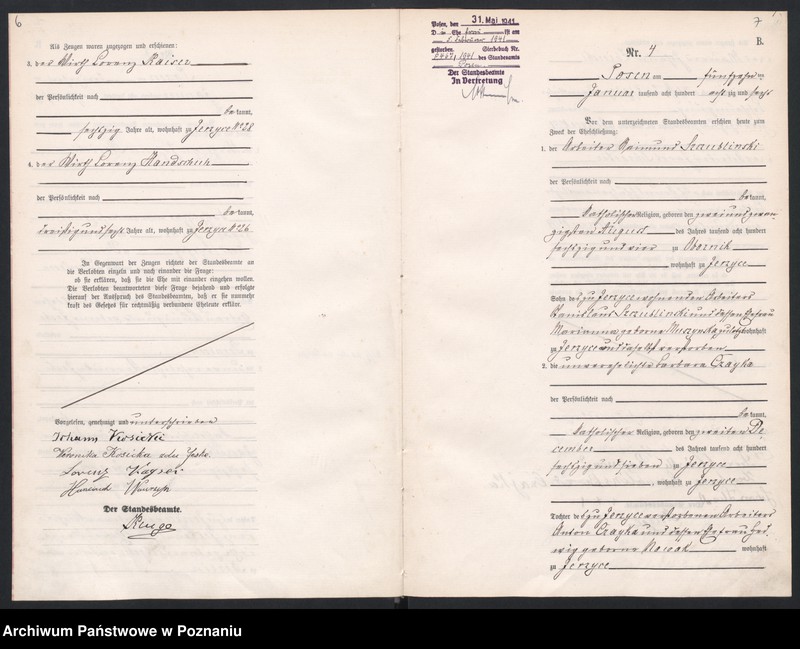 6
Als Zeugen waren zugezogen und erschienen:
3. der Wirth Lorenz Kaiser
der Persönlichkeit nach
be kannt,
sechszig Jahre alt, wohnhaft zu Jerzyce No 28
4. der Wirth Lorenz Handschuh
der Persönlichkeit nach
be kannt,
dreißigundsechs Jahre alt, wohnhaft zu Jerzyce No 26
In Gegenwart der Zeugen richtete der Standesbeamte an
die Verlobten einzeln und nach einander die Frage:
ob sie erklären, daß sie die Ehe mit einander eingehen wollen.
Die Verlobten beantworteten diese Frage bejahend und erfolgte
hierauf der Ausspruch des Standesbeamten, daß er sie nunmehr
kraft des Gesetzes für rechtmäßig verbundene Eheleute erkläre.
Vorgelesen, genehmigt und unterschrieben
Johann Kosicki
Veronika Kosicka oder
Lorenz Kayser
Der Standesbeamte.
7
Posen, den 31. Mai 1941
D ie Ehe frau ist am
5. Februar 1941
gestorben. Sterbebuch Nr.
1941 des Standesamts
Posen
Der Standesbeamte
In Vertretung
B.
Nr. 4
Posen am fünfzehnten
Januar tausend acht hundert acht zig und sechs
Vor dem unterzeichneten Standesbeamten erschien heute zum
Zweck der Eheschließung:
1. der Arbeiter Raimund Szaublinski
der Persönlichkeit nach
be kannt,
katholischer Religion, geboren den zweiundzwan-
zigsten August des Jahres tausend acht hundert
sechzig und vier zu Obornik
, wohnhaft zu Jerzyce
Sohn des zu Jerzyce wohnenden Arbeiters
Stanislaus Szaublinski und dessen Ehefrau
Marianna geborne Muszynska zuletzt wohnhaft
zu Jerzyce und daselbst verstorben
2. die unverehelichte Barbara Czayka
der Persönlichkeit nach
be kannt,
katholischer Religion, geboren den zweiten De-
cember des Jahres tausend acht hundert
sechzig und sieben zu Jerzyce
, wohnhaft zu Jerzyce
Tochter des zu Jerzyce verstorbenen Arbeiters
Anton Czayka und dessen Ehefrau Hed-
wig geborne Nowak wohnhaft
zu Jerzyce
Archiwum Państwowe w Poznaniu